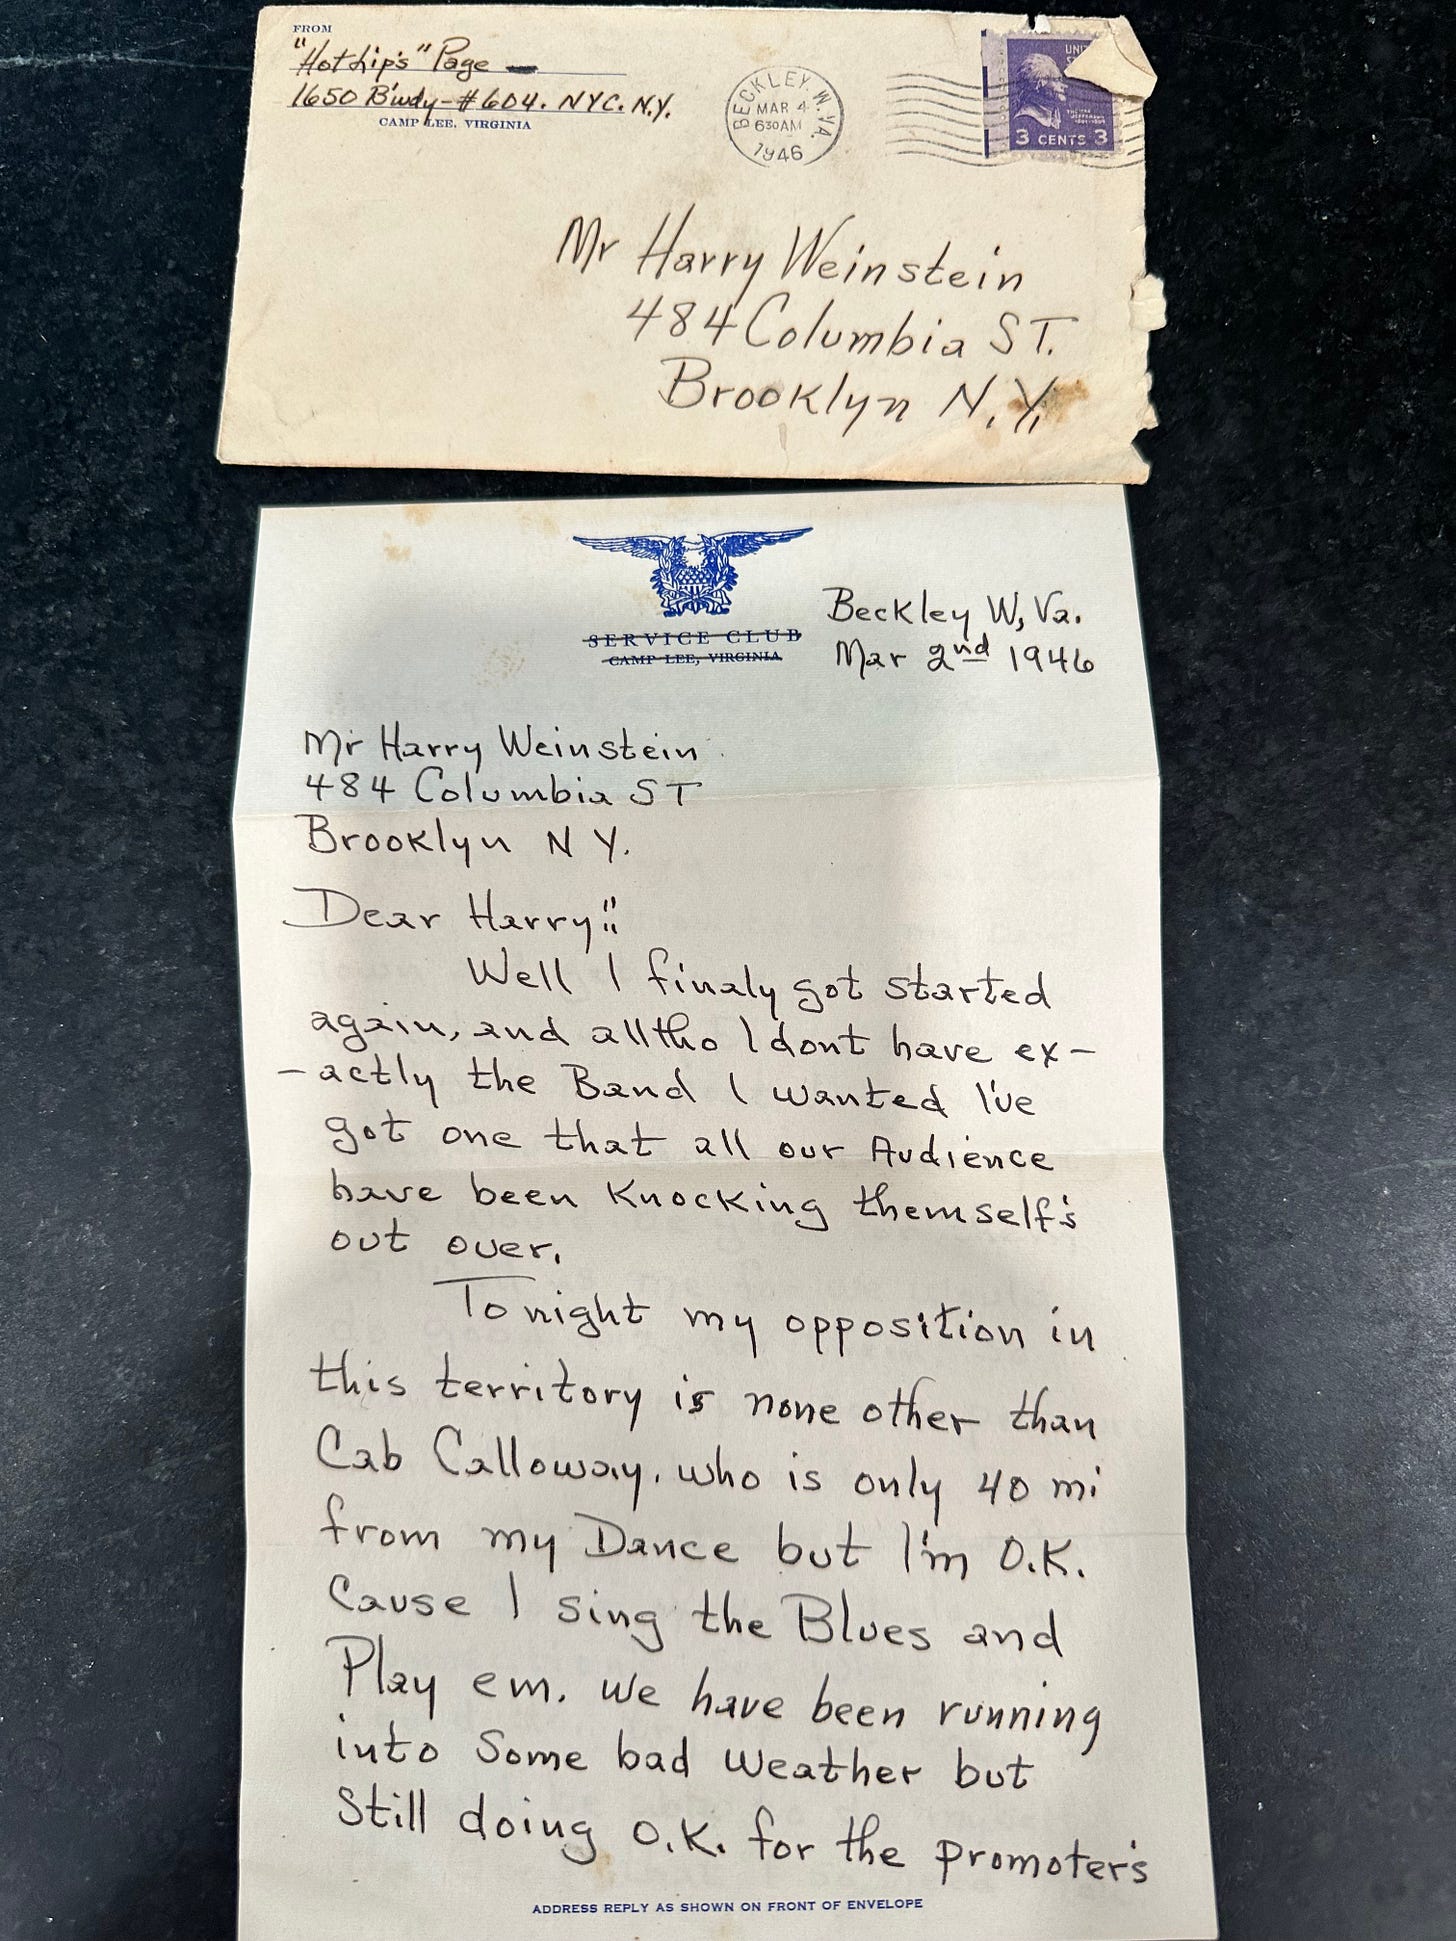 FROM
"Hot Lip's" Page —
1650 B'wdy - #604. NYC. N.Y.
CAMP LEE, VIRGINIA
BECKLEY. W. VA.
MAR 4
630AM
1946
UNI
THOMAS
JEFFERSON
3 CENTS 3
Mr Harry Weinstein
484 Columbia ST.
Brooklyn N.Y.
SERVICE CLUB
CAMP LEE, VIRGINIA
Beckley W, Va.
Mar 2nd 1946
Mr Harry Weinstein
484 Columbia ST
Brooklyn N Y.
Dear Harry!!
Well I finaly got started
again, and alltho I dont have ex-
-actly the Band I wanted I've
got one that all our Audience
have been Knocking themself's
out over.
Tonight my opposition in
this territory is none other than
Cab Calloway. who is only 40 mi
from my Dance but I'm O.K.
Cause I sing the Blues and
Play em. We have been running
into Some bad Weather but
Still doing O.K. for the promoter's
ADDRESS REPLY AS SHOWN ON FRONT OF ENVELOPE